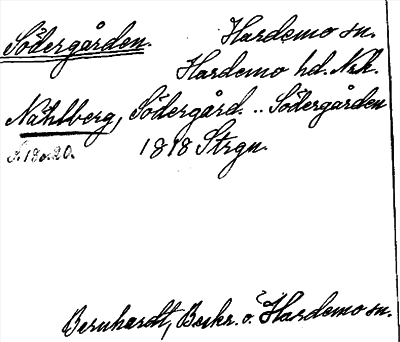 Södergården.
Hardemo sn.
Hardemo hd. Nrk.
Nählberg, Södergård. .. Södergården
1818 Strgn.
Bernhardt, Beskr. ö. Hardemo sn.